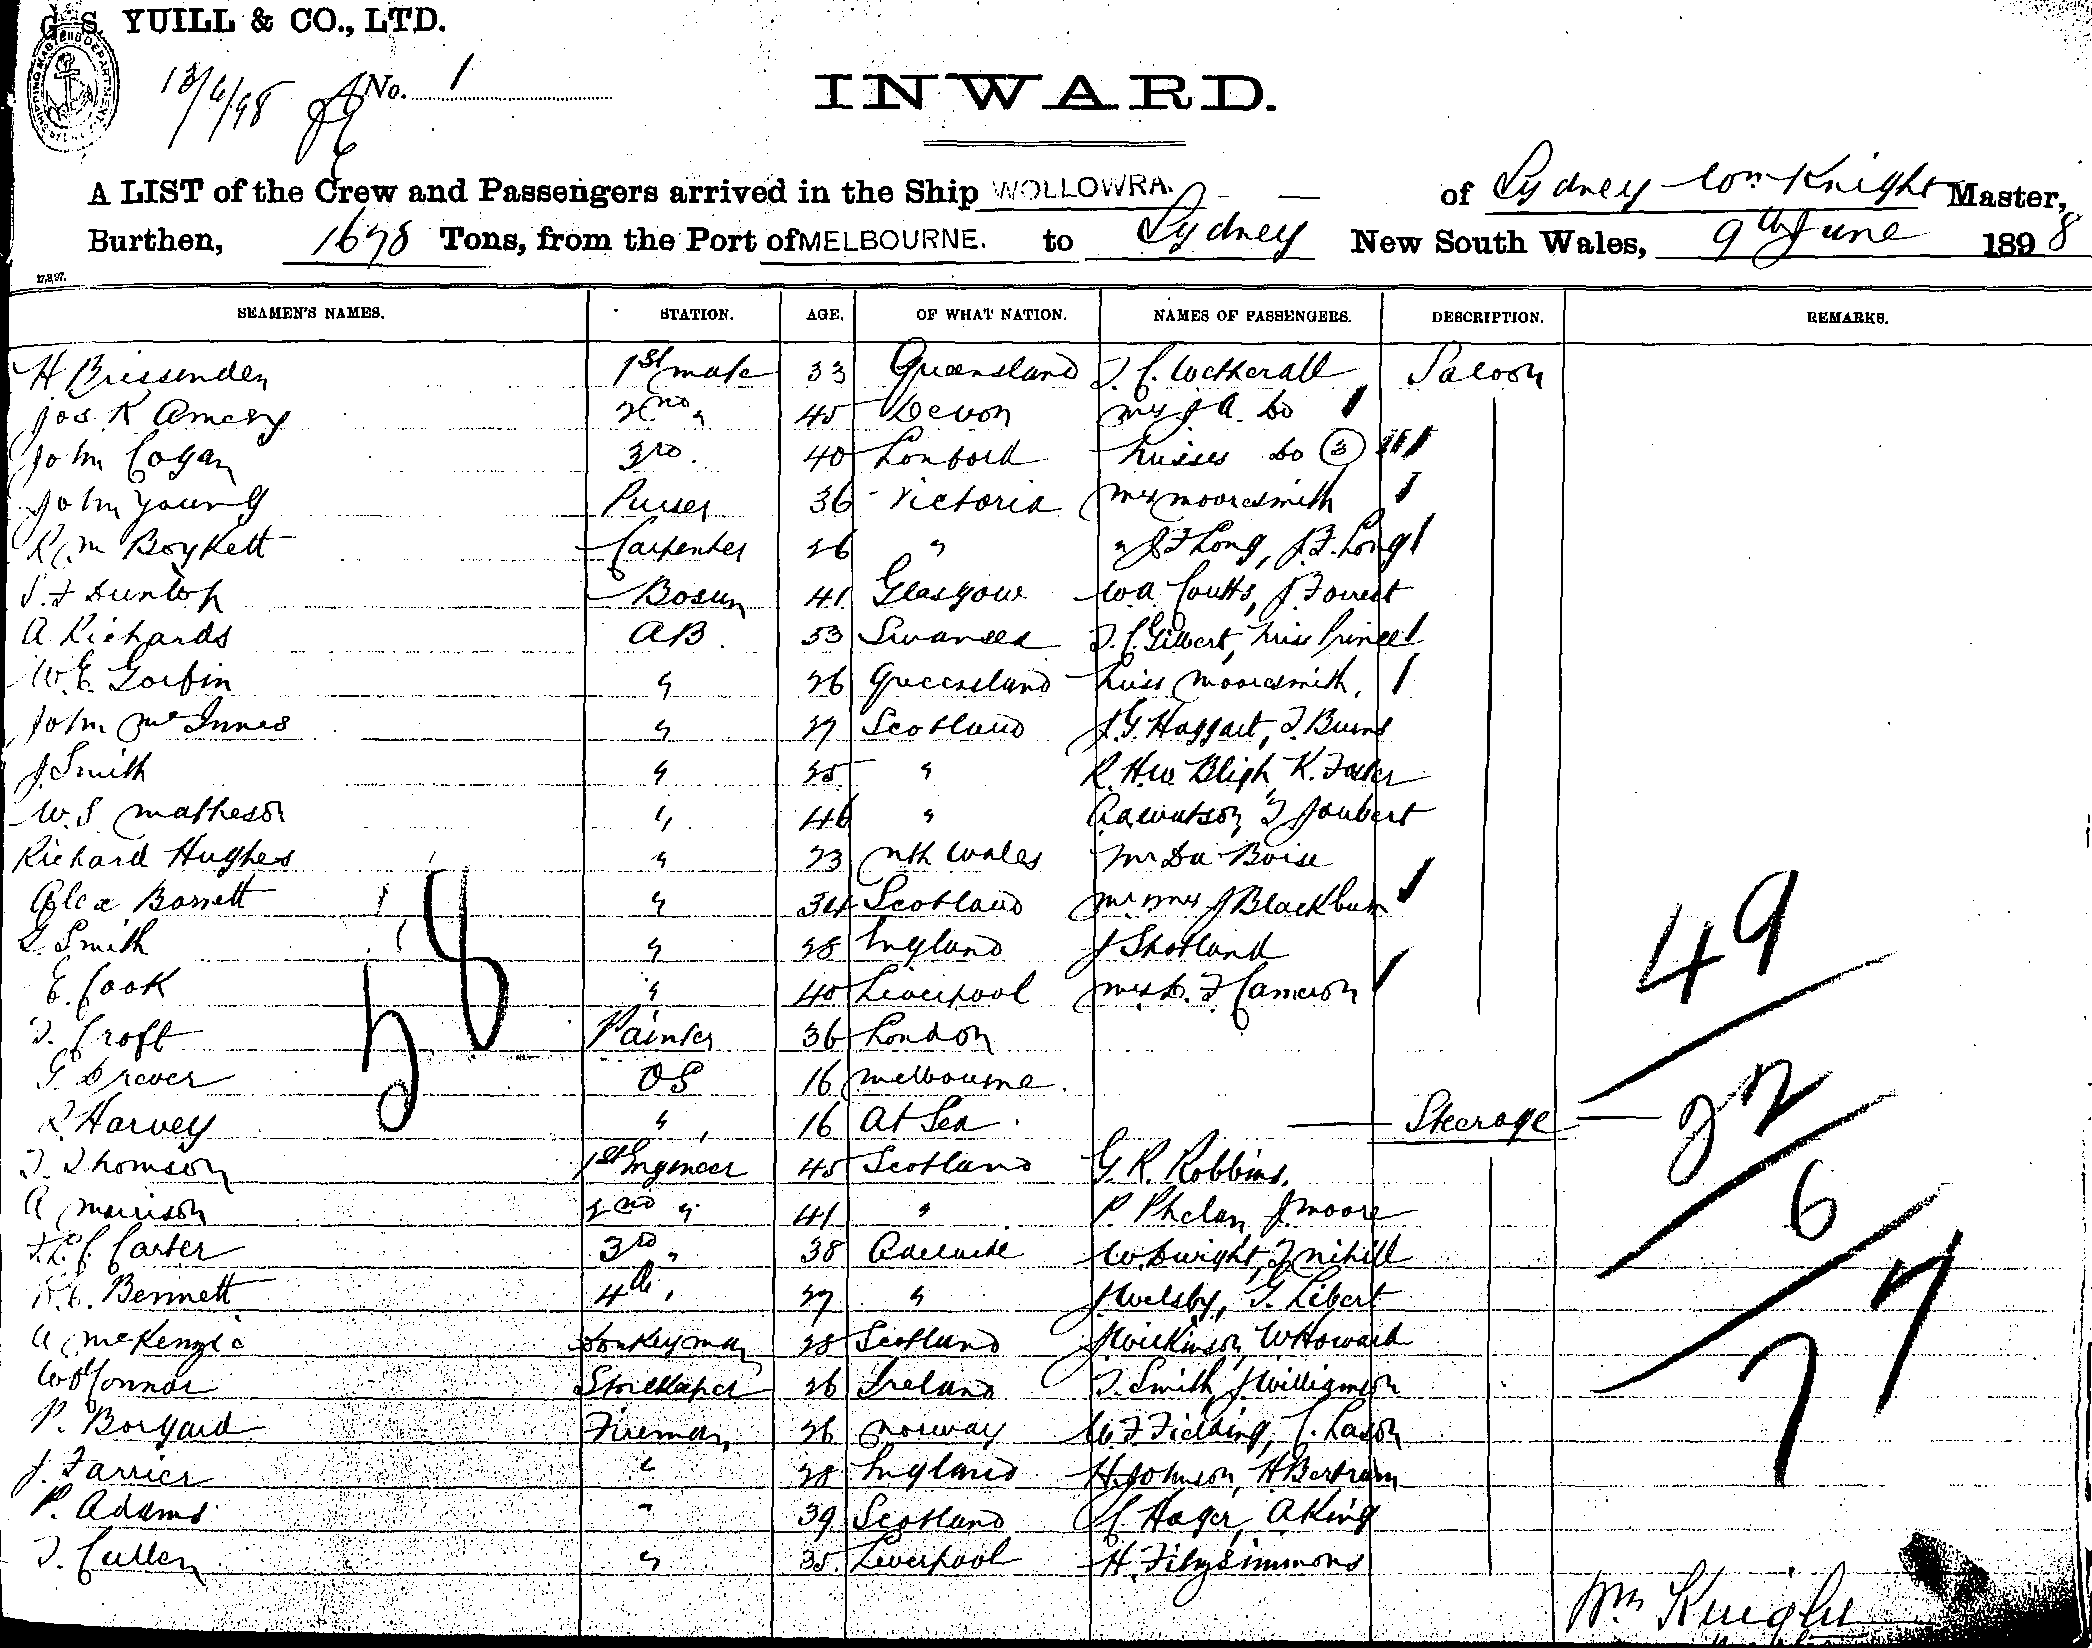 G. S. YUILL & CO., LTD.
13/6/98 No. 1
INWARD.
A LIST of the Crew and Passengers arrived in the Ship WOLLOWRA. of Sydney Wm Knight Master,
Burthen, 1678 Tons, from the Port of MELBOURNE. to Sydney New South Wales, 9th June 1898
SEAMEN'S NAMES. STATION. AGE. OF WHAT NATION. NAMES OF PASSENGERS. DESCRIPTION. REMARKS.
H Brissenden 1st mate 33 Queensland T. C. Wetherall Saloon
Jos K Amery 2nd " 45 Devon Mrs J A. Do
John Cogan 3rd. 40 Longford Misses Do 3
John Young Purser 36 Victoria Mrs Mooresmith
R M Boykett Carpenter 26 " " J F Long, J. F. Long
S. F Dunlop Bosun 41 Glasgow W A Coutts, J Forrest
A Richards AB. 53 Swansea T. C. Gilbert, Miss Prince
W. E. Gorbin " 26 Queensland Miss Mooresmith.
John McInnes " 27 Scotland J. G. Haggart, T. Burns
J Smith " 25 " R. H. W Bligh, K. Foster
W. S Matheson " 46 " A A Watson, T Joubert
Richard Hughes " 23 Nth Wales Mr Du Boise
Alex Barnett " 34 Scotland Mr Mrs J Blackburn
Smith " 28 England J Shotland
E. Cook " 40 Liverpool Mrs D. F Cameron
T. Croft Painter 36 London
G. Drever OS 16 Melbourne.
R. Harvey " 16 At Sea. Steerage
T. Thomson 1st Engineer 45 Scotland G. R. Robbins.
A Morrison 2nd " 41 " P. Phelan, J Moore
Carter 3rd " 38 Adelaide W. Dwight, T Nihill
Bennett 4th " 27 " J Welsby, G. Libert
A McKenzie Donkeyman 28 Scotland J Wilkinson, W Howard
W O'Connor Storekeeper 26 Ireland T. Smith, J Williamson
P. Borgard Fireman 26 Norway W. F. Fielding, C. Lason
J. Farrier " 28 England H. Johnson, H Bertram
P. Adams " 39 Scotland C Hager, A King
T. Cullen " 35 Liverpool H. Fitzsimmons
28
49
22
6
77
Wm Knight